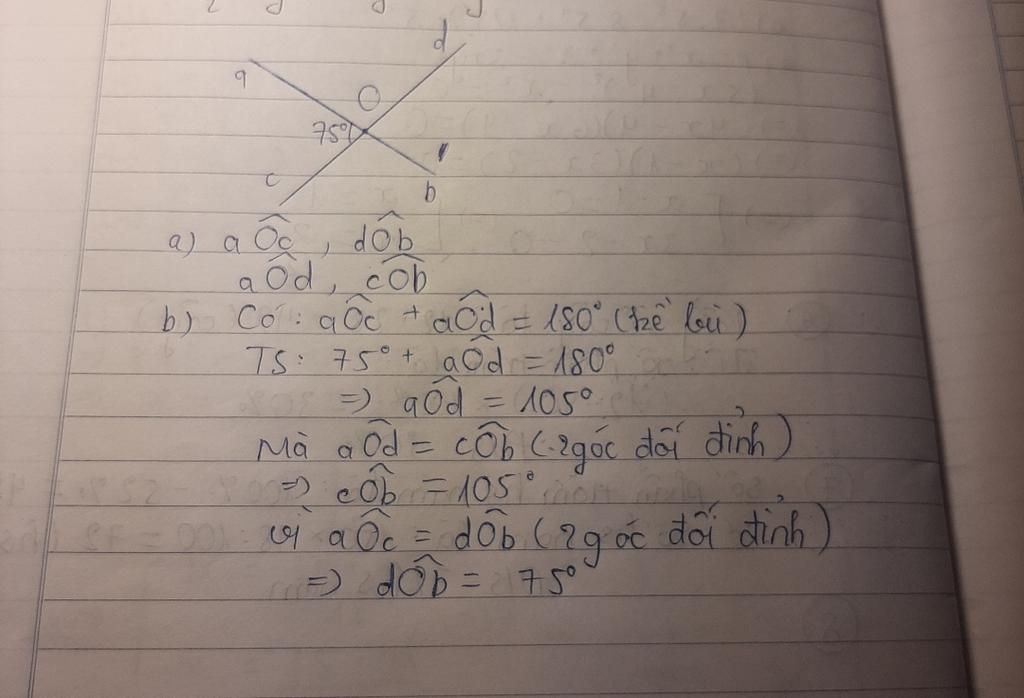 d
a
O
75°
c
b
a) aÔc , dÔb
aÔd , cÔb
b) Có : aÔc + aÔd = 180° (kề bù)
TS: 75° + aÔd = 180°
=> aÔd = 105°
Mà aÔd = cÔb (2 góc đối đỉnh)
=> cÔb = 105°
Vì aÔc = dÔb (2 góc đối đỉnh)
=> dÔb = 75°